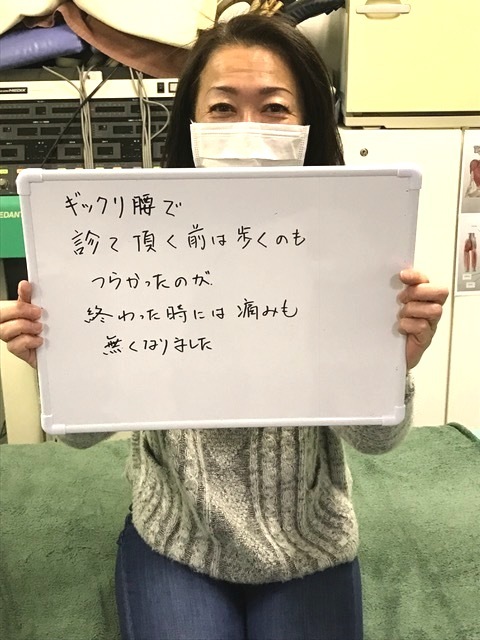 ギックリ腰で
診て頂く前は歩くのも
つらかったのが
終わった時には痛みも
無くなりました